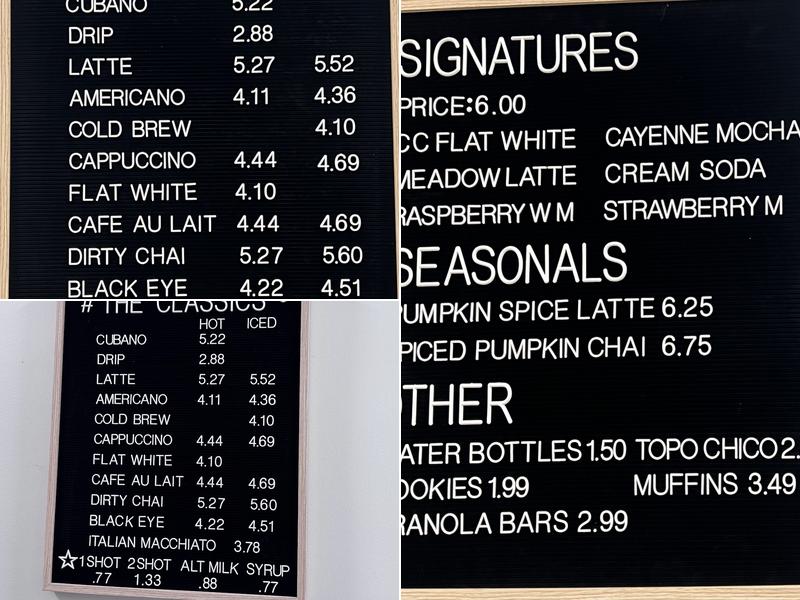 CUBANO 5.22
DRIP 2.88
LATTE 5.27 5.52
AMERICANO 4.11 4.36
COLD BREW 4.10
CAPPUCCINO 4.44 4.69
FLAT WHITE 4.10
CAFE AU LAIT 4.44 4.69
DIRTY CHAI 5.27 5.60
BLACK EYE 4.22 4.51
# THE CLASSICS
HOT ICED
CUBANO 5.22
DRIP 2.88
LATTE 5.27 5.52
AMERICANO 4.11 4.36
COLD BREW 4.10
CAPPUCCINO 4.44 4.69
FLAT WHITE 4.10
CAFE AU LAIT 4.44 4.69
DIRTY CHAI 5.27 5.60
BLACK EYE 4.22 4.51
ITALIAN MACCHIATO 3.78
1 SHOT 2 SHOT ALT MILK SYRUP
.77 1.33 .88 .77
SIGNATURES
PRICE:6.00
CC FLAT WHITE CAYENNE MOCHA
MEADOW LATTE CREAM SODA
RASPBERRY W M STRAWBERRY M
SEASONALS
PUMPKIN SPICE LATTE 6.25
PICED PUMPKIN CHAI 6.75
OTHER
ATER BOTTLES 1.50 TOPO CHICO 2.
OOKIES 1.99 MUFFINS 3.49
RANOLA BARS 2.99